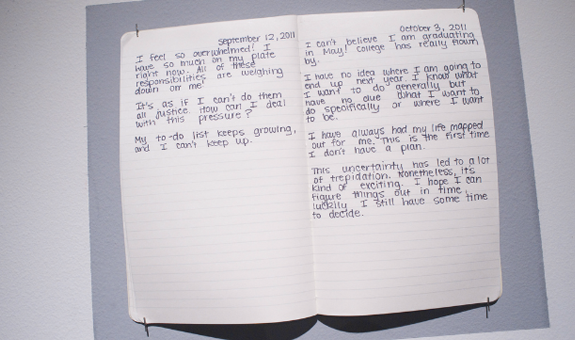 September 12, 2011
I feel so overwhelmed! I
have so much on my plate
right now. All of these
responsibilities are weighing
down on me.
It's as if I can't do them
all justice. How can I deal
with this pressure?
My to-do list keeps growing,
and I can't keep up.
October 3, 2011
I can't believe I am graduating
in May! College has really flown
by.
I have no idea where I am going to
end up next year. I know what
I want to do generally but
have no clue what I want to
do specifically or where I want
to be.
I have always had my life mapped
out for me. This is the first time
I don't have a plan.
This uncertainty has led to a lot
of trepidation. Nonetheless, its
kind of exciting. I hope I can
figure things out in time,
luckily I still have some time
to decide.